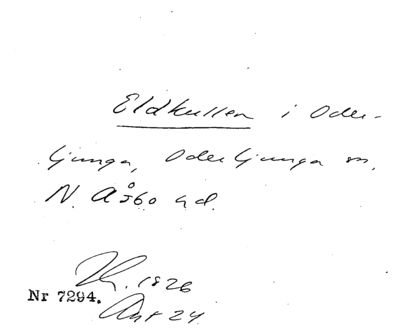 Eldkullen i Oder-
ljunga, Oderljunga sn,
N. Åsbo hd.
1826
Nr 7294.
24